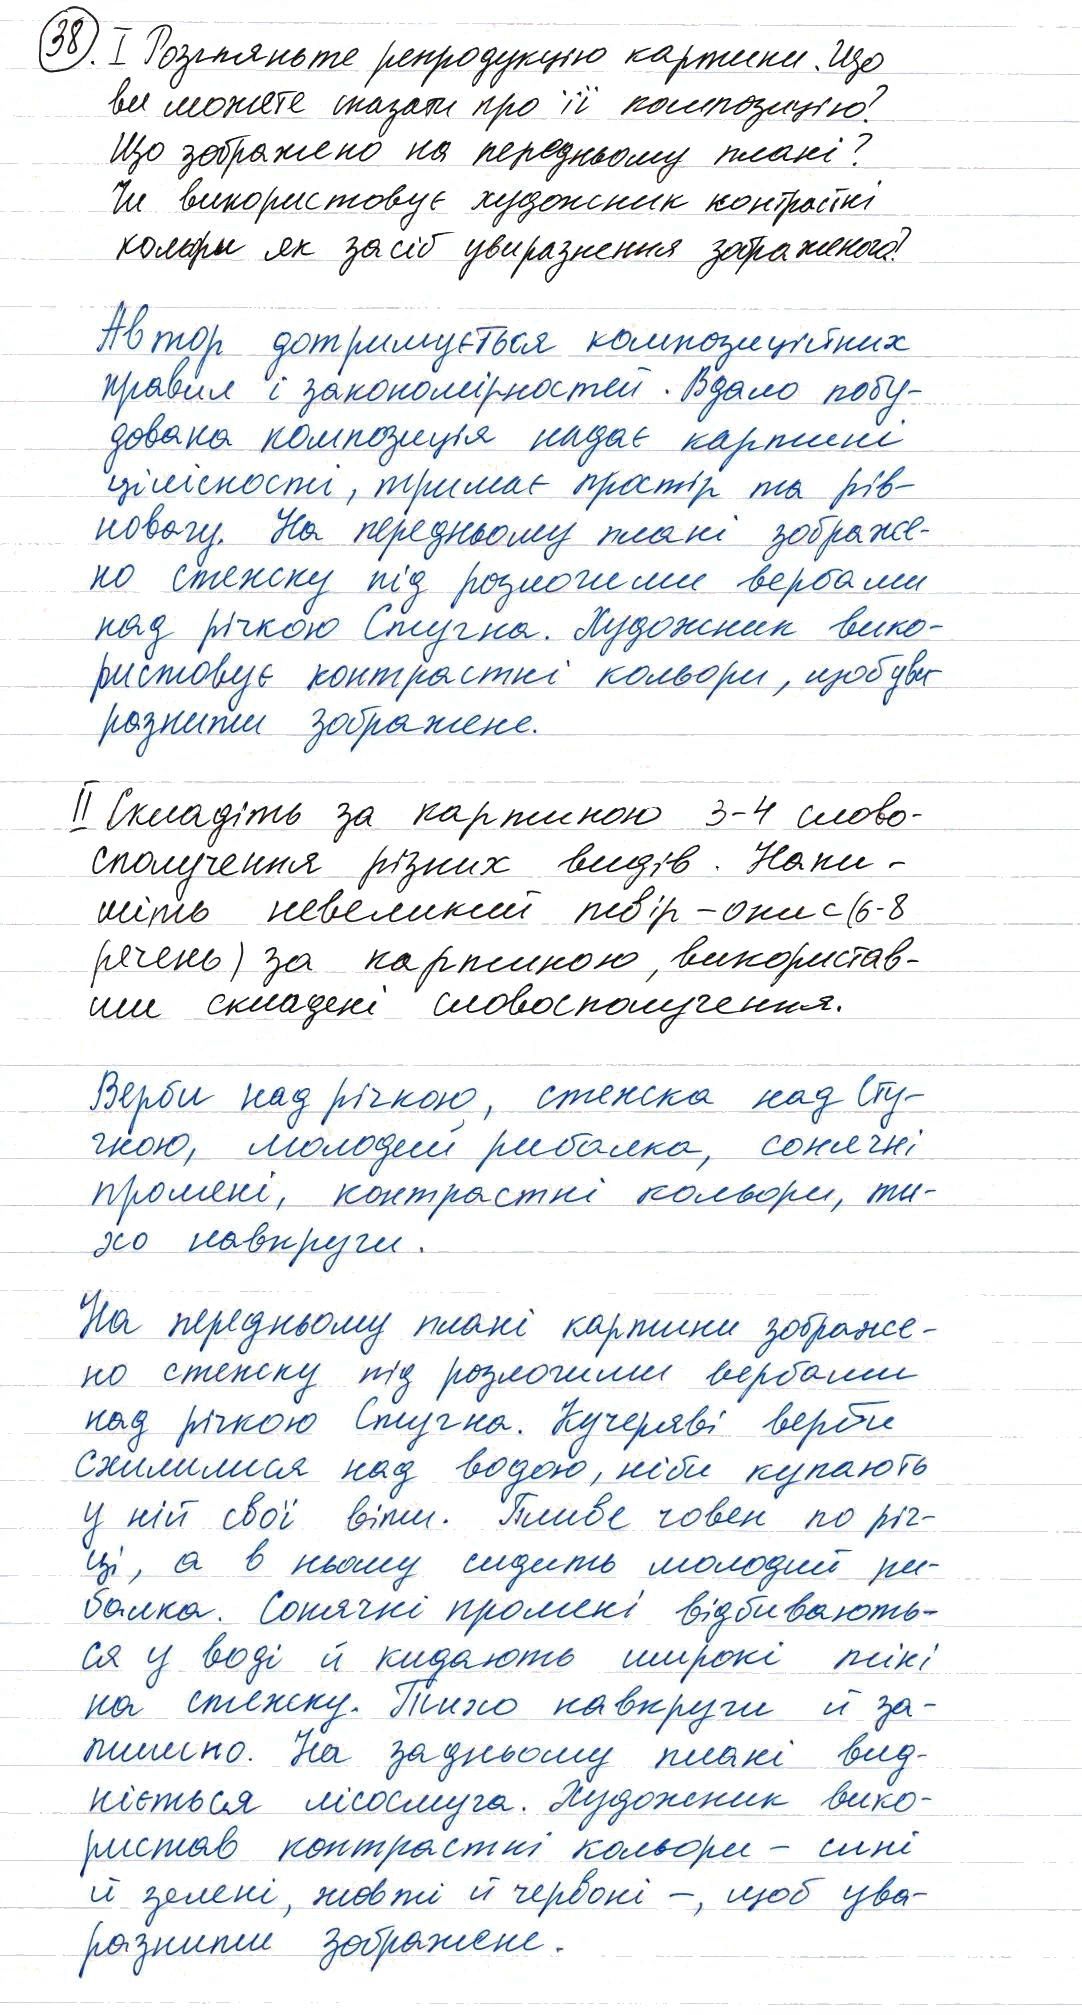 38. І Розгляньте репродукцію картини. Що
ви можете сказати про її композицію?
Що зображено на передньому плані?
Чи використовує художник контрастні
кольри як засіб увиразнення зображеного?
Автор дотримується композиційних
правил і закономірностей. Вдало побу-
дована композиція надає картині
цілісності, тримає простір та рів-
новагу. На передньому плані зображе-
но стежку під розлогими вербами
над річкою Стугна. Художник вико-
ристовує контрастні кольори, щоб уви-
разнити зображене.
ІІ Складіть за картиною 3-4 слово-
сполучення різних видів. Напи-
шіть невеликий твір-опис (6-8
речень) за картиною, використав-
ши складені словосполучення.
Верби над річкою, стежка над Сту-
гною, молодий рибалка, сонячні
промені, контрастні кольори, ти-
хо навкруги.
На передньому плані картини зображе-
но стежку під розлогими вербами
над річкою Стугна. Кучеряві верби
схилилися над водою, ніби купають
у ній свої віти. Пливе човен по річ-
ці, а в ньому сидить молодий ри-
балка. Сонячні промені відбивають-
ся у воді й кидають широкі тіні
на стежку. Тихо навкруги й за-
тишно. На задньому плані вид-
ніється лісосмуга. Художник вико-
ристав контрастні кольори – сині
й зелені, жовті й червоні –, щоб ува-
разнити зображене.